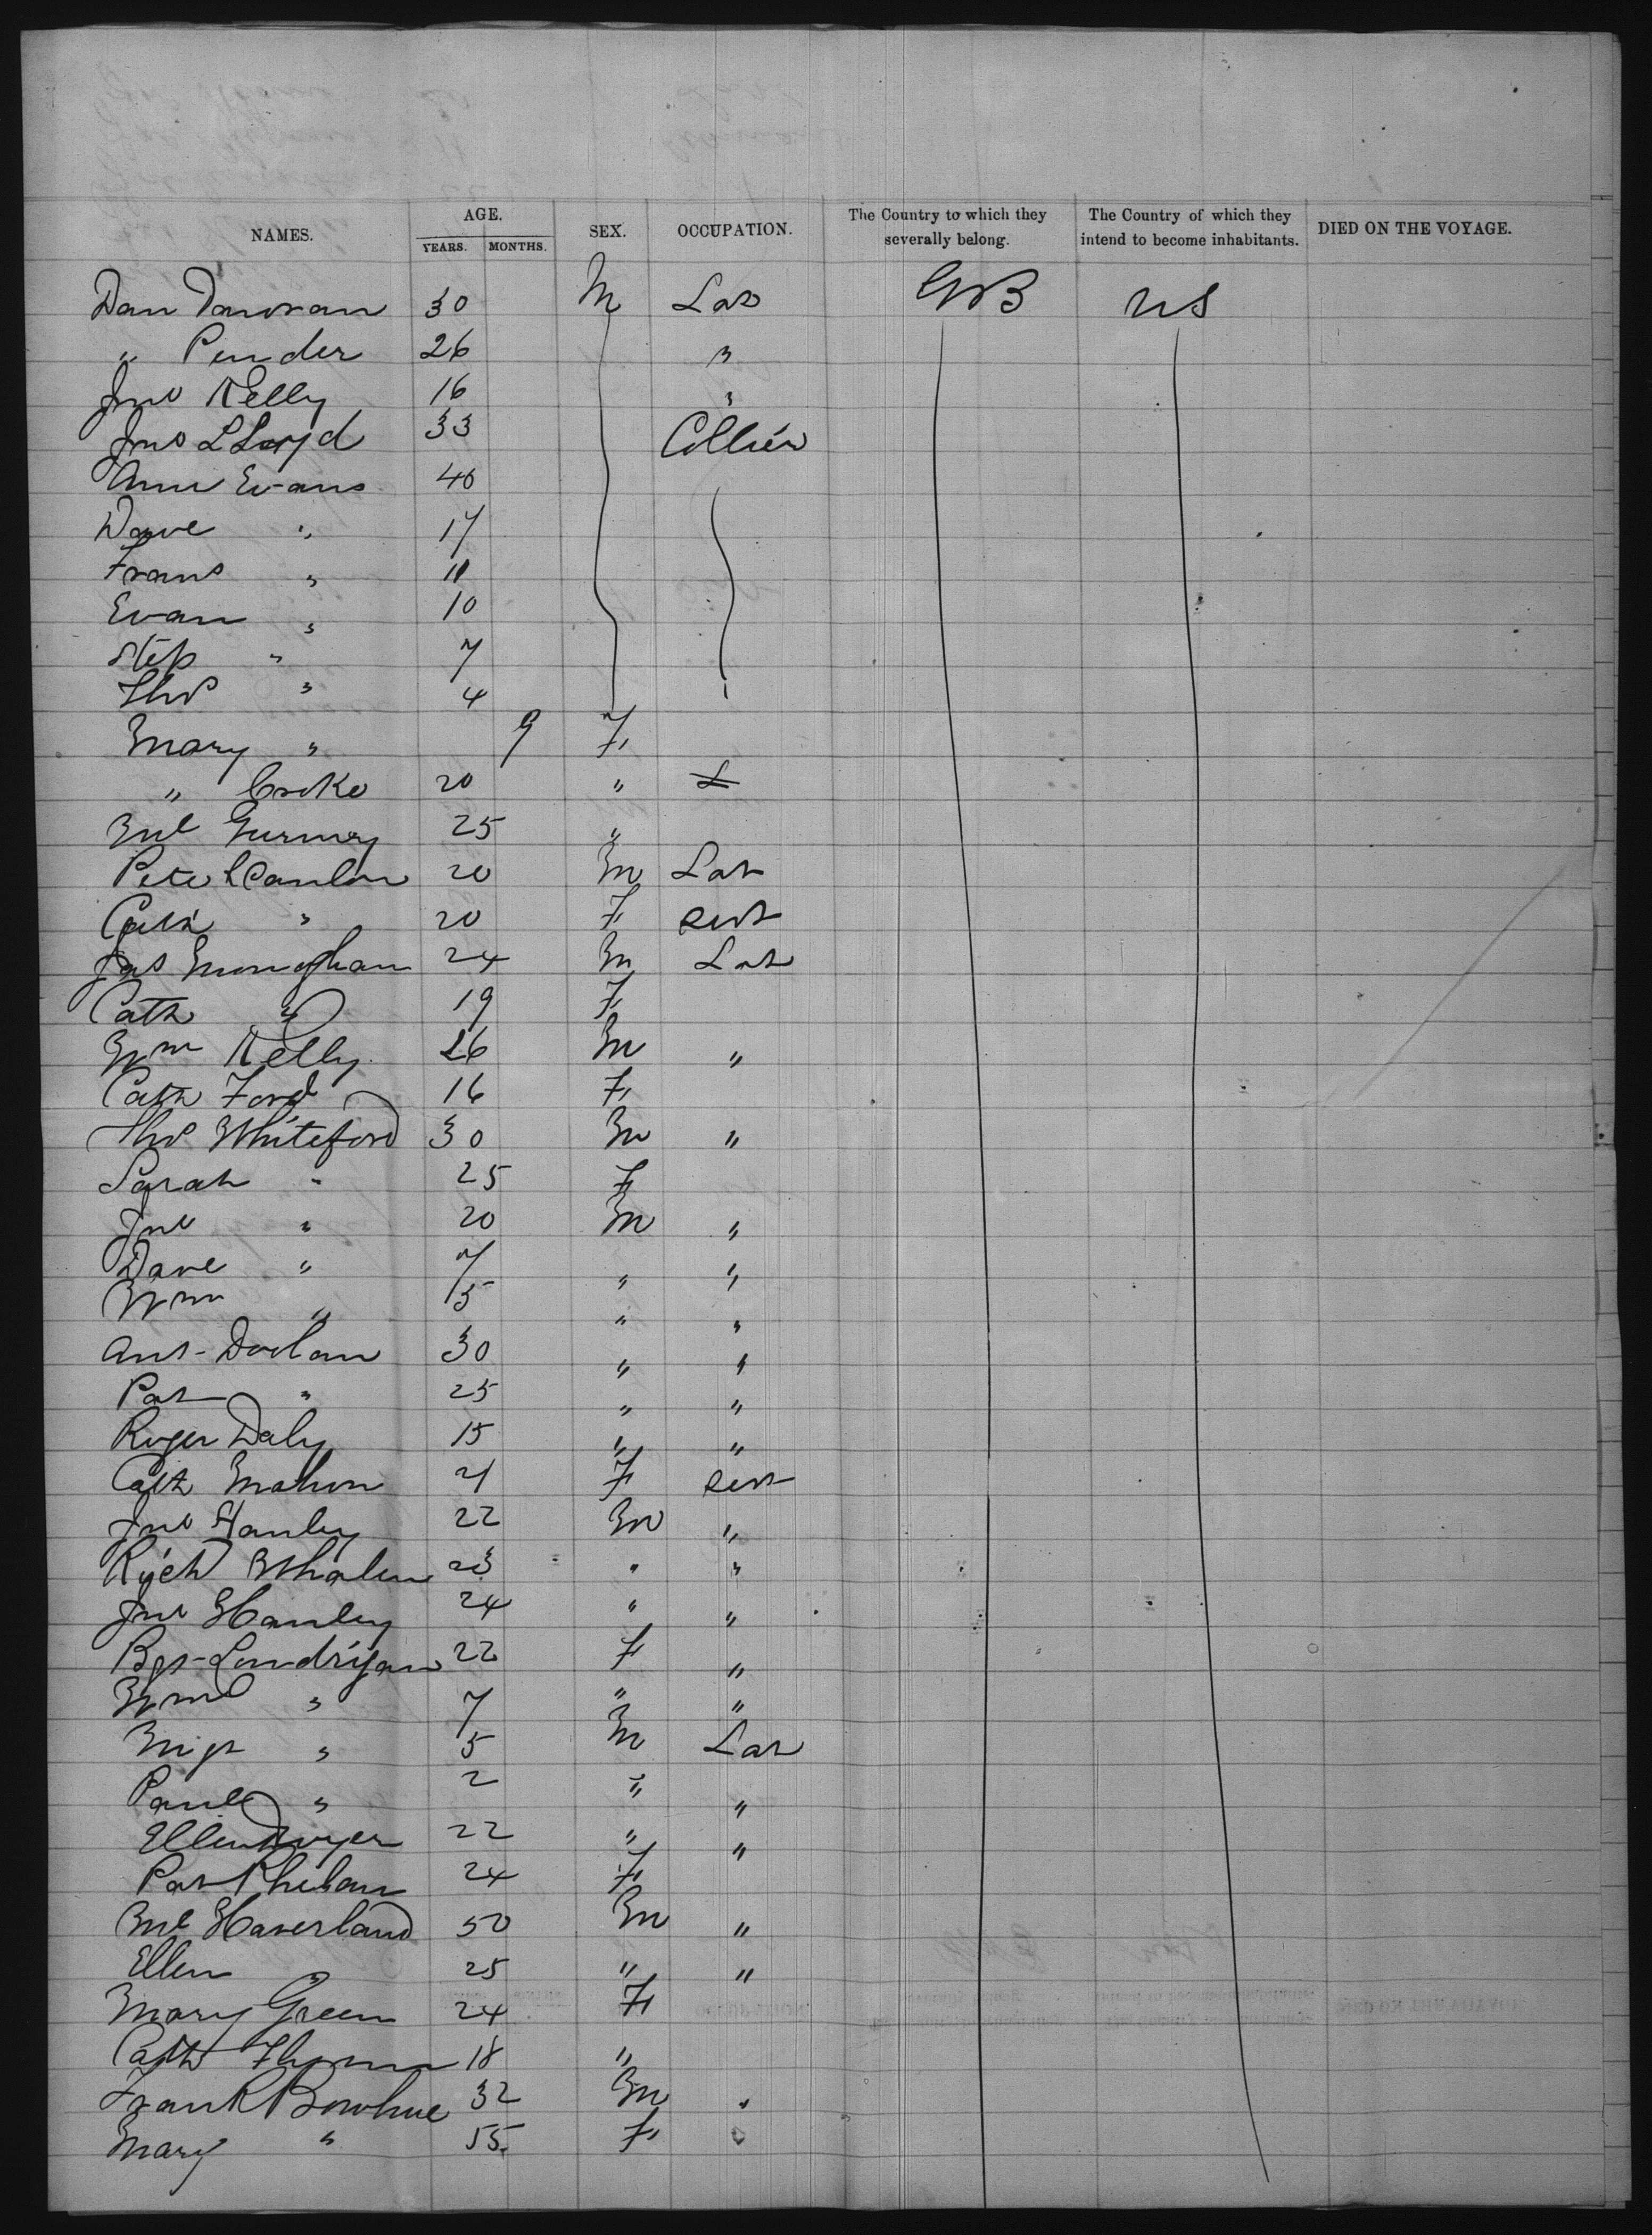 NAMES. AGE. YEARS. MONTHS. SEX. OCCUPATION. The Country to which they severally belong. The Country of which they intend to become inhabitants. DIED ON THE VOYAGE.
Dan Donovan 30 M Lab GB US
" Pender 26 "
Jno Kelly 16 "
Jno LLoyd 33 Collier
Ann Evans 40
Dave " 17
Frans " 11
Evan " 10
Step " 7
Thos " 4
Mary " 9 F
" Croke 20 " L
Ml Gurney 25 "
Pete Scanlon 20 M Lab
Cath " 20 F Servt
Jas Monoghan 24 M Lab
Cath " 19 F
Wm Kelly 26 M "
Cath Ford 16 F
Thos Whiteford 30 M "
Sarah " 25 F
Jno " 20 M "
Dave " 7 " "
Wm " 15 " "
Ant Doolan 30 " "
Pat " 25 " "
Roger Daly 15 " "
Cath Mahon 21 F Servt
Jno Hanley 22 M "
Richd Whalen 23 " "
Jno Hanley 24 " "
Bgt Londrigan 22 F "
" 7 " "
Mgt " 5 M Lab
" 2 " "
Ellen Dwyer 22 " "
Pat Phelan 24 F
Ml Haverland 50 M "
Ellen 25 " "
Mary Green 24 F
Cath 18 "
Frank 32 M "
Mary " 55 F